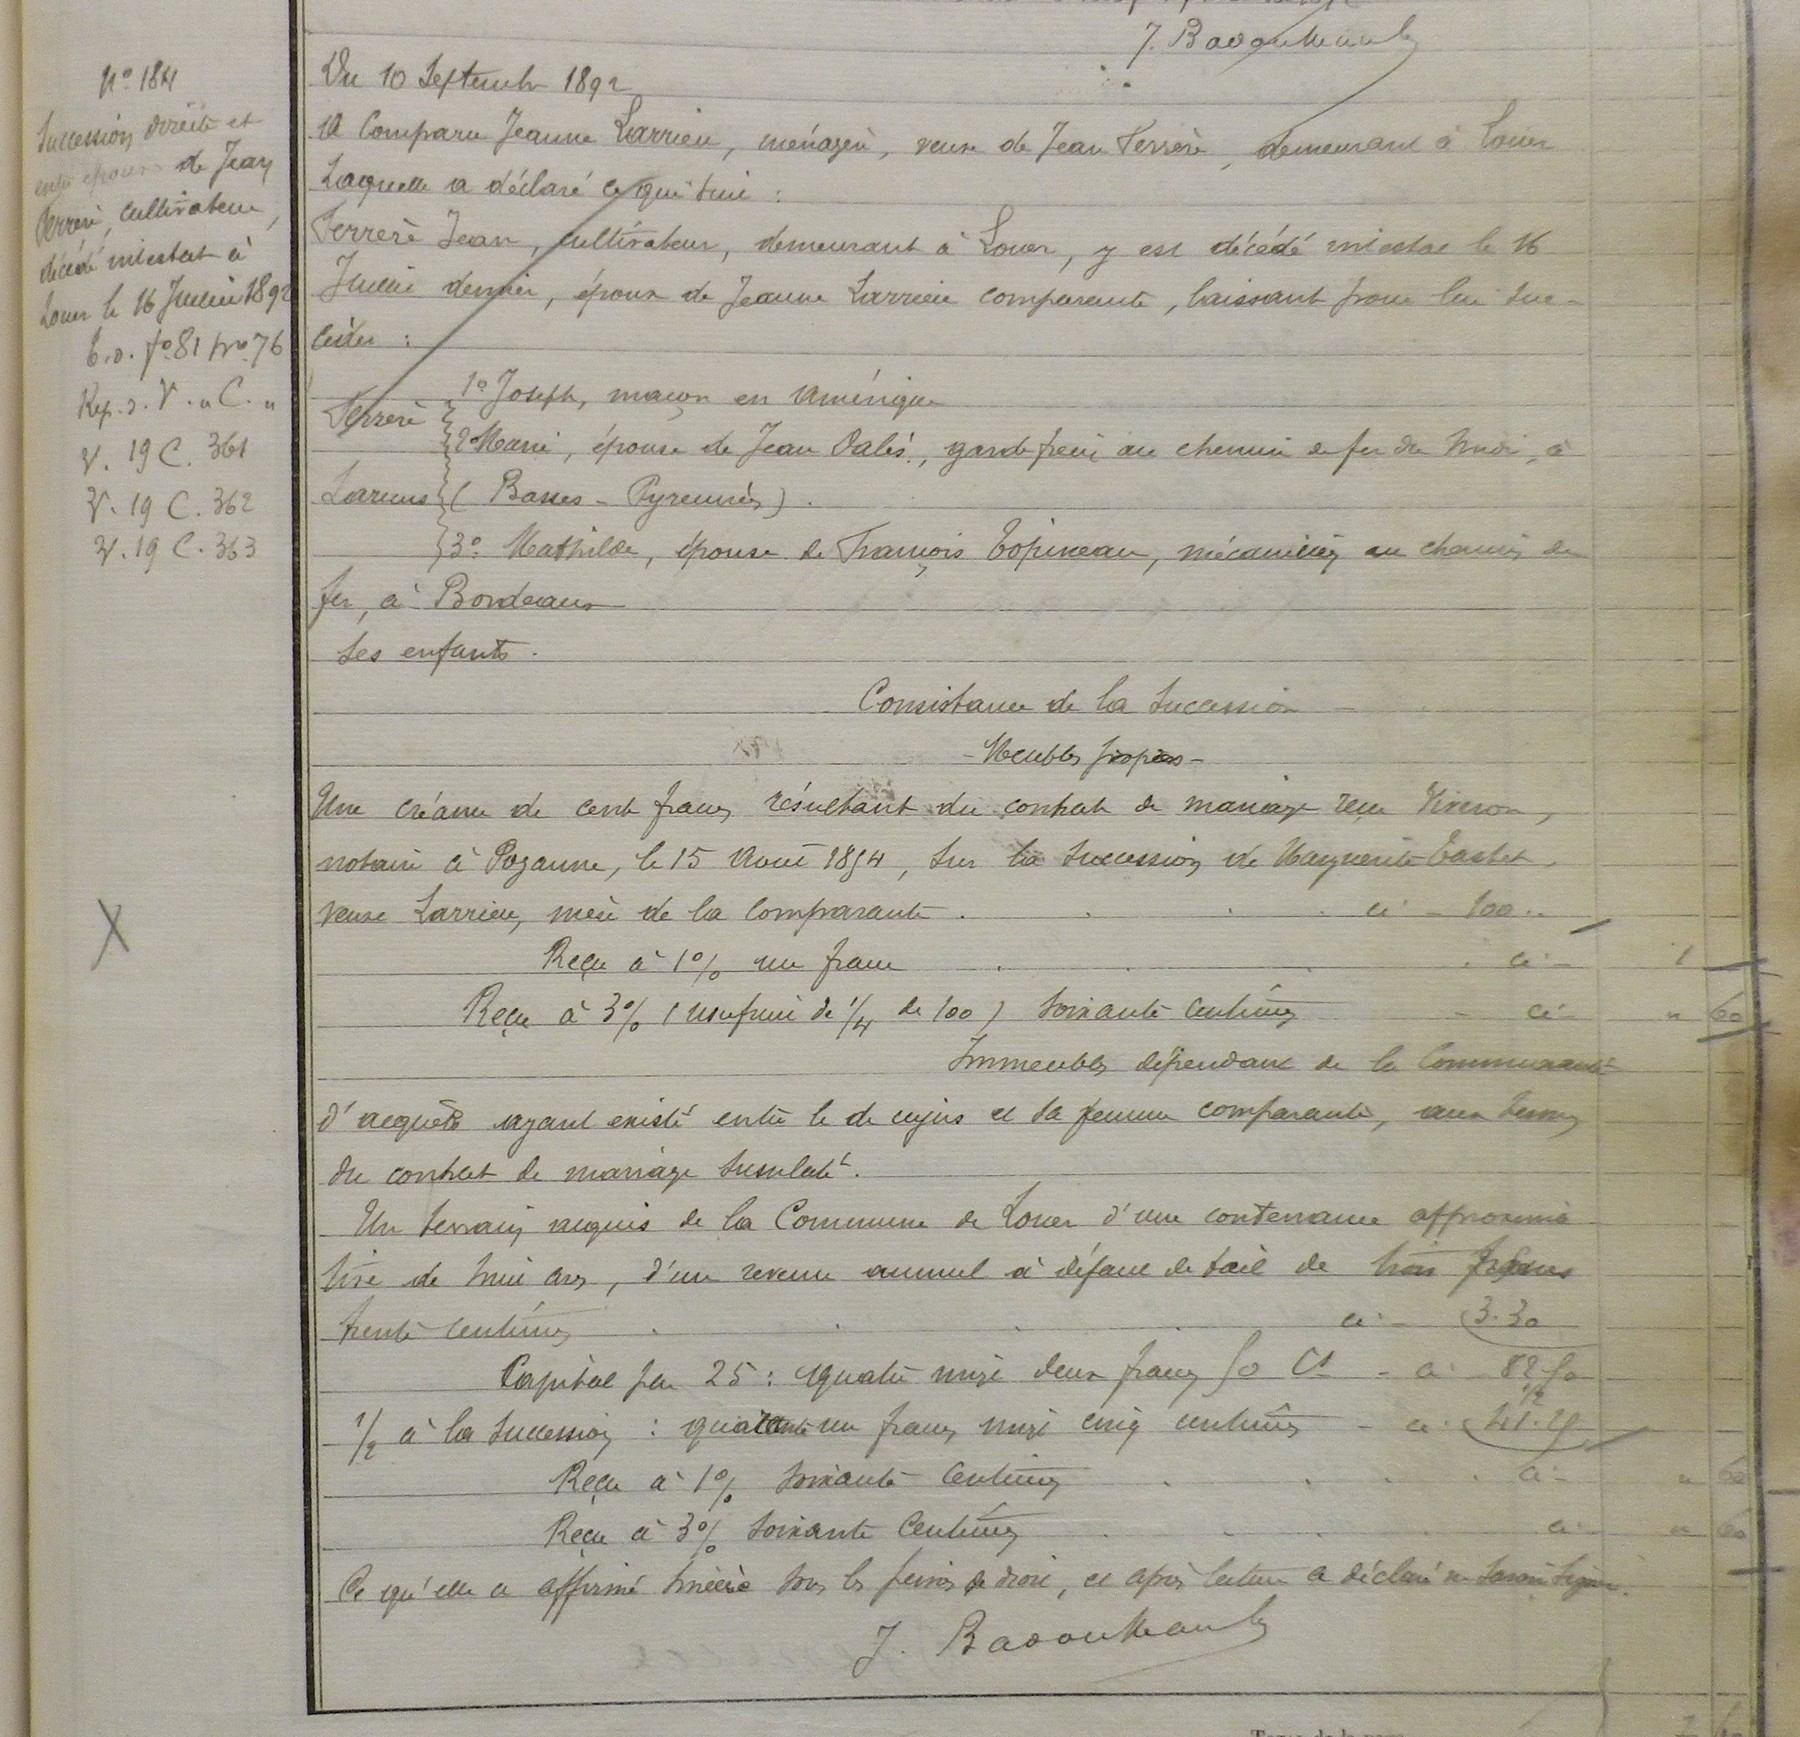 J. Badoumeaul
Du 10 Septembre 1892
A Comparu Jeanne Larrieu, ménagère, veuve de Jean Ferrère, demeurant à Louer
Laquelle a déclaré ce qui suit :
Ferrère Jean, cultivateur, demeurant à Louer, y est décédé intestat le 16
Juillet dernier, époux de Jeanne Larrieu comparante, laissant pour lui suc-
céder :
1º Joseph, maçon en Amérique
Ferrère
2º Marie, épouse de Jean Dalès, garde frein au chemin de fer du Midi, à
Laruns (Basses-Pyrénées).
3º Mathilde, épouse de François Topineau, mécanicien au chemin de
fer, à Bordeaux
Ses enfants.
Consistance de la Succession
- Meubles propres -
Une créance de cent francs résultant du contrat de mariage reçu
notaire à Poyanne, le 15 Août 1854, sur la succession de Marguerite Tastet
veuve Larrieu, mère de la comparante . . . . ci - 100 "
Reçu à 1% un franc . . . . ci - 1
Reçu à 3% (usufruit de 1/4 de 100) soixante centimes - ci - " 60
Immeubles dépendant de la Communauté
d'acquêts ayant existé entre le de cujus et sa femme comparante, aux termes
du contrat de mariage susrelaté.
Un terrain acquis de la Commune de Louer d'une contenance approxima
tive de huit ares, d'un revenu annuel à défaut de bail de trois francs
trente centimes . . . . ci - 3.30
Capital par 25 : quatre vingt deux francs 50 Cs - ci - 82.50
1/2
1/2 à la succession : quarante un francs vingt cinq centimes - ci - 41.25
Reçu à 1% soixante centimes . . . . ci - " 60
Reçu à 3% soixante centimes . . . . ci - " 60
Ce qu'elle a affirmé sincère sous les peines de droit, et après lecture a déclaré ne savoir signer.
J. Badoumeaul
Nº 184
Succession directe et
entre époux de Jean
Ferrère, cultivateur,
décédé intestat à
Louer le 16 Juillet 1892
T.D. fº 81 nº 76
Rep. D. V. " C. "
V. 19 C. 361
V. 19 C. 362
V. 19 C. 363
X